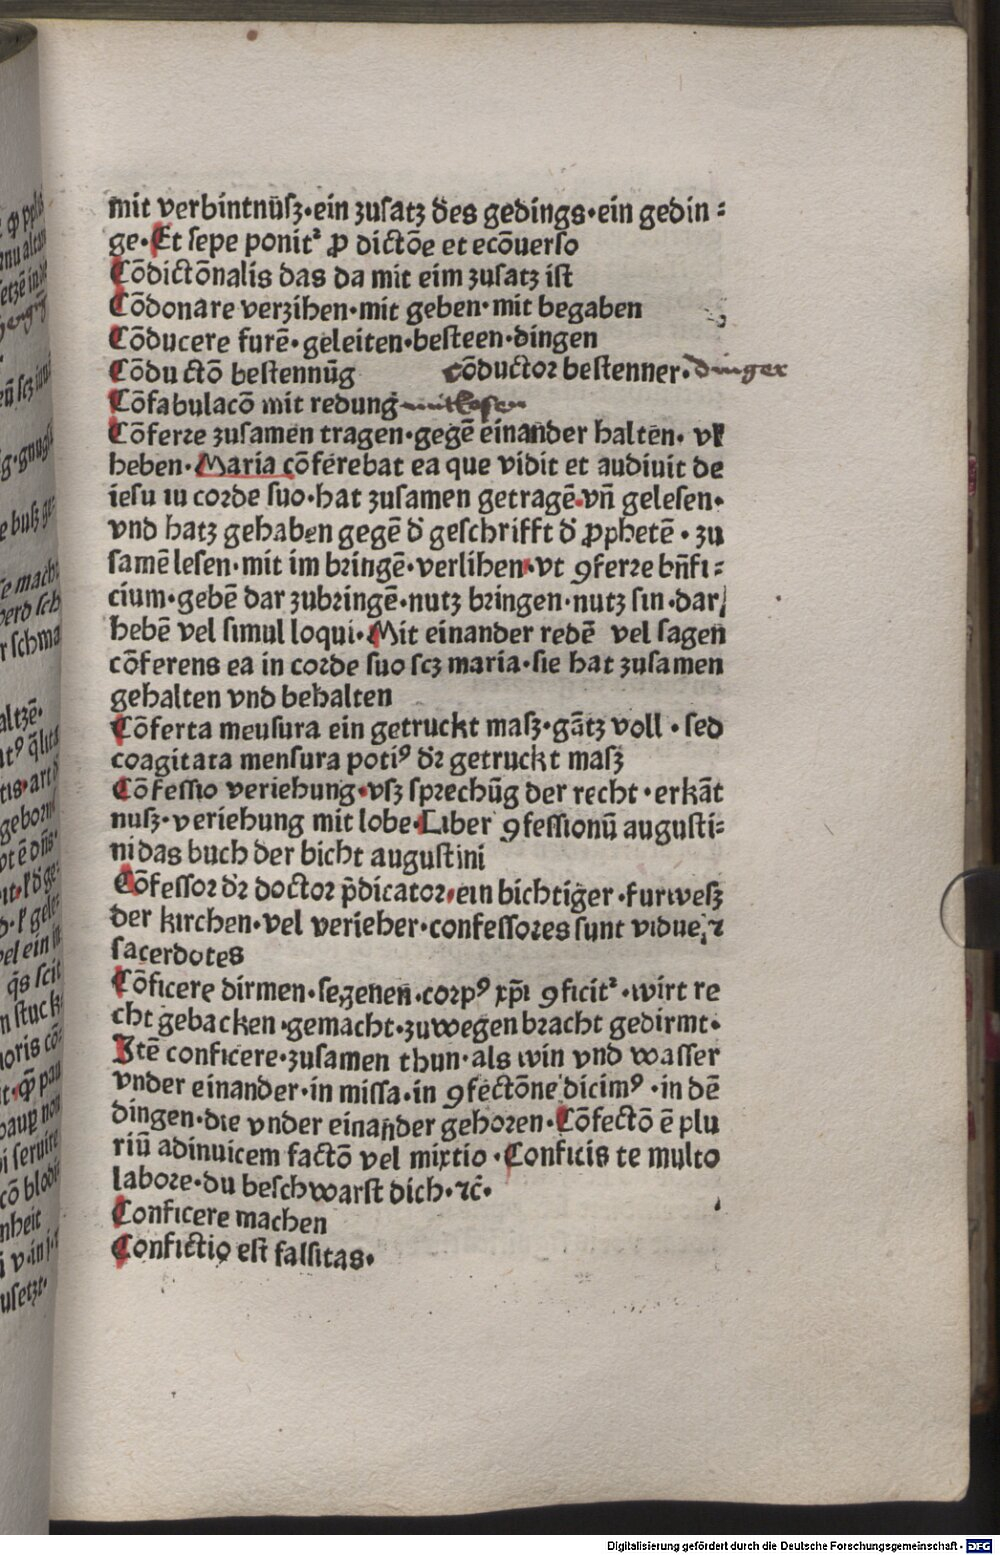 mit verbintnüſz·ein zuſatz des gedings·ein gedin⸗
ge·Et ſepe ponitᷣ ꝓ dictōe et ecōuerſo
Cōdictōnalis das da mit eim zuſatz iſt
Cōdonare verzihen·mit geben·mit begaben
Cōducere furē·geleiten·beſteen·dingen
Cōductō beſtennūg cōductoꝛ beſtenner·dinger
Cōfabulacō mit redung mitkoſen
Cōferꝛe zuſamen tragen·gegē einander halten· vf
heben·Maria cōferebat ea que vidit et audiuit de
ieſu in coꝛde ſuo·hat zuſamen getragē·vn̄ geleſen·
vnd hatz gehaben gegē d̕ geſchrifft d̕ ꝓphetē·zu
ſamē leſen·mit im bꝛingē·verlihen·vt ꝯferꝛe bn̄fi⸗
cium·gebē dar zubꝛingē·nutz bꝛingen·nutz ſin·dar/
hebē vel ſimul loqui·Mit einander redē vel ſagen
cōferens ea in coꝛde ſuo ſcꝫ maria·ſie hat zuſamen
gehalten vnd behalten
Cōferta meuſura ein getruckt maſz·gātz voll·ſed
coagitata menſura potiꝰ dꝛ̄ getruckt maſz
Cōfeſſio veriehung·vſz ſprechūg der recht·erkāt
nuſz·veriehung mit lobe·Liber ꝯfeſſionū auguſti⸗
ni das buch der bicht auguſtini
Cōfeſſoꝛ dꝛ̄ doctoꝛ p̄dicatoꝛ·ein bichtiger·furweſz
der kirchen·vel verieher·confeſſoꝛes ſunt vidue,⁊
ſacerdotes
Cōficere dirmen·ſegenen·coꝛpꝰ xp̄i ꝯficitᷣ·wirt re
cht gebacken·gemacht·zuwegen bꝛacht gedirmt·
Itē conficere·zuſamen thun·als win vnd waſſer
vnder einander·in miſſa·in ꝯfectōne dicimꝰ·in dē
dingen·die vnder einander gehoꝛen·Cōfectō ē plu
riū adinuicem factō vel mixtio·Conficis te multo
laboꝛe·du beſchwarſt dich·⁊c̄·
Conficere machen
Confictio eſt falſitas·
Digitalisierung gefördert durch die Deutsche Forschungsgemeinschaft · DFG